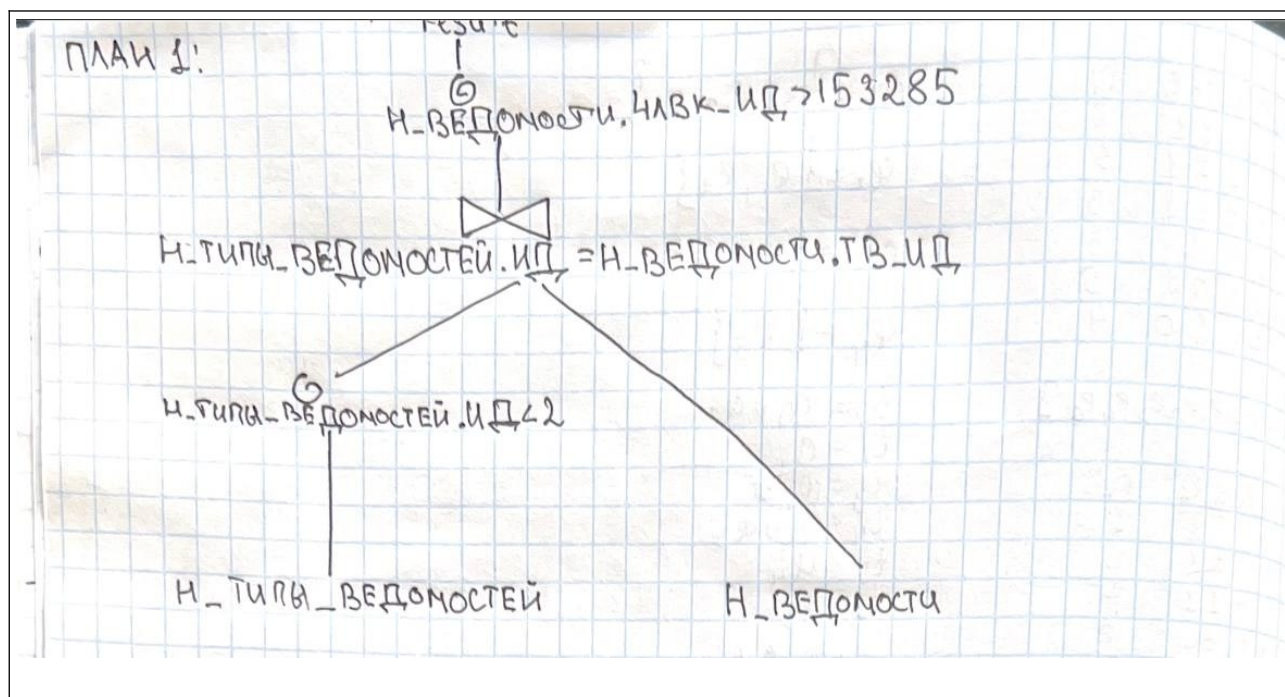 ПЛАН 1:
result
σ
Н_ВЕДОМОСТИ.ЧЛВК_ИД >153285
Н_ТИПЫ_ВЕДОМОСТЕЙ.ИД = Н_ВЕДОМОСТИ.ТВ_ИД
σ
Н_ТИПЫ_ВЕДОМОСТЕЙ.ИД<2
Н_ТИПЫ_ВЕДОМОСТЕЙ
Н_ВЕДОМОСТИ